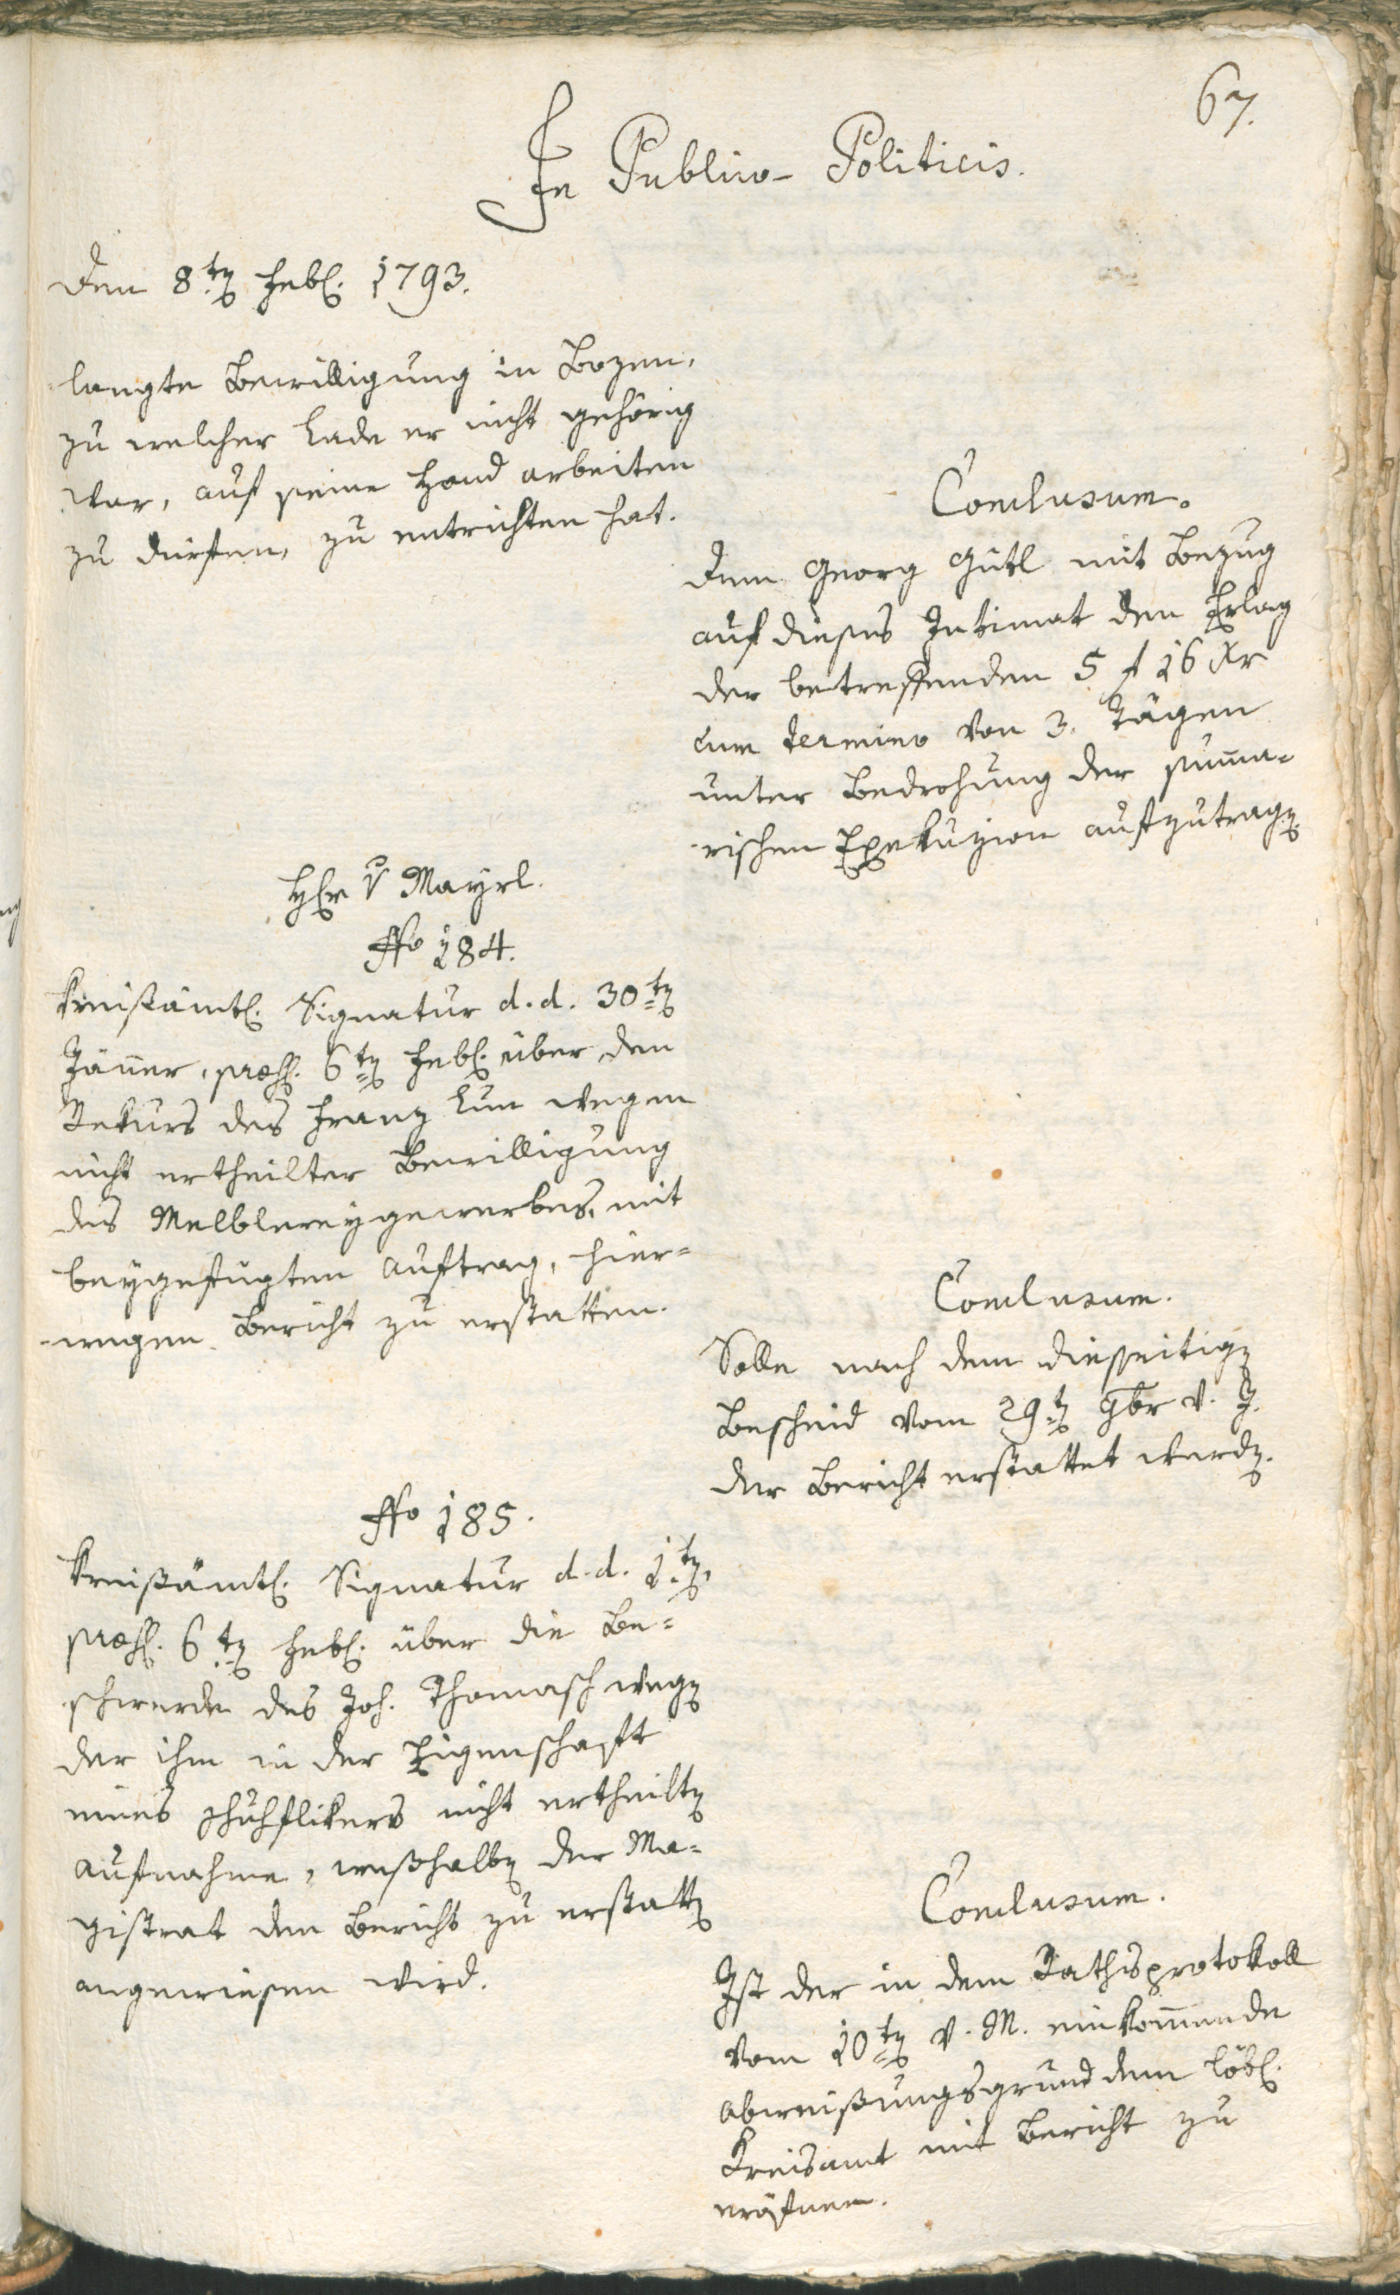 67.
In Publico-Politicis.
Den 8ten Febl. 1793.
langte Bewilligung in Bozen,
zu welcher Lade er nicht gehörig
war, auf seine Hand arbeiten
zu dürfen, zu entrichten hat.
Conclusum.
Dem Georg Gütl mit Bezug
auf dieses Intimat den Erlag
der betreffenden 5 f 16 Xr
cum termino von 3. Tägen
unter Bedrohung der summa-
rischen Exekuzion aufzutragen.
Herr v Mayrl.
No 184.
Kreißämtl. Signatur d. d. 30ten
Jänner, præs. 6ten Febl. über den
Rekurs des Franz Lun wegen
nicht ertheilter Bewilligung
des Melblereygewerbes, mit
beygefügten Auftrag, hier-
wegen Bericht zu erstatten.
Conclusum.
Solle nach dem diesseitigen
Bescheid vom 29ten 9br v. J.
der Bericht erstattet werden.
No 185.
Kreißämtl. Signatur d. d. 1ten,
præs. 6ten Febl. über die Be-
schwerde des Joh. Thomasch wegen
der ihm in der Eigenschaft
eines Schuhflikers nicht ertheilten
Aufnahme, weßhalben der Ma-
gistrat den Bericht zu erstatten
angewiesen wird.
Conclusum.
Ist der in dem Rathsprotokoll
vom 10ten v. M. einkommende
Abweißungsgrund dem löbl.
Kreisamt mit Bericht zu
eröfnen.